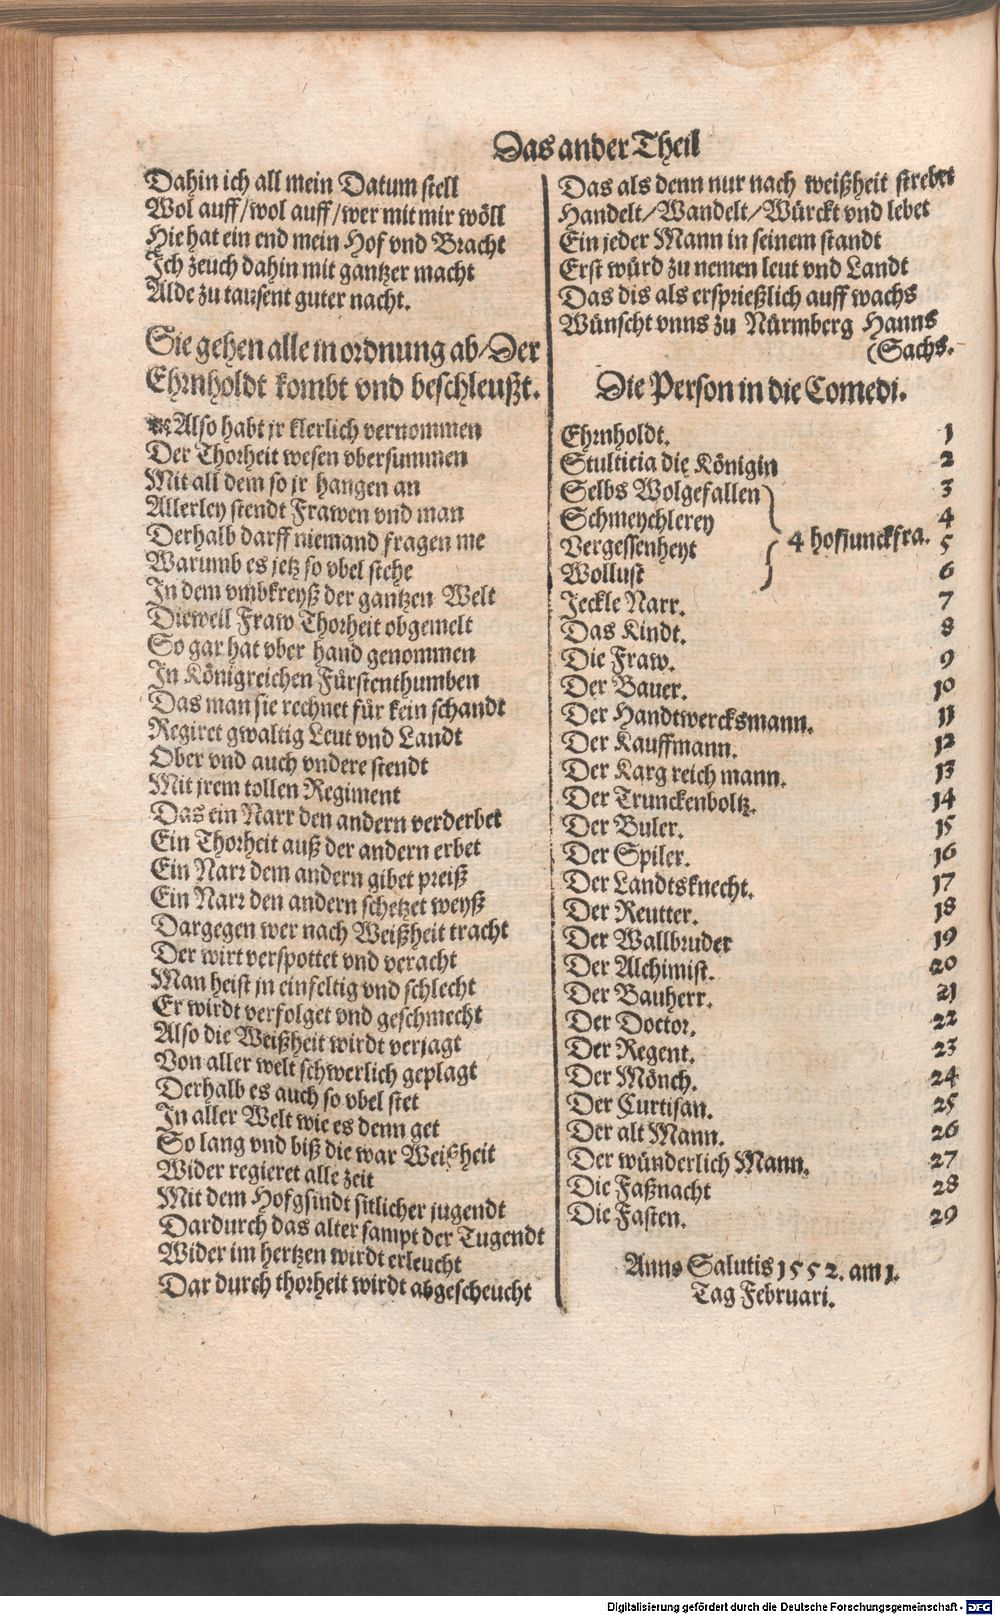 Das ander Theil
Dahin ich all mein Datum stell
Wol auff/wol auff/wer mit mir wöll
Hie hat ein end mein Hof vnd Bracht
Ich zeuch dahin mit gantzer macht
Alde zu tausent guter nacht.
Sie gehen alle in ordnung ab/Der
Ehrnholdt kombt vnd beschleußt.
Also habt jr klerlich vernommen
Der Thorheit wesen vbersummen
Mit all dem so jr hangen an
Allerley stendt Frawen vnd man
Derhalb darff niemand fragen me
Warumb es jetz so vbel stehe
In dem vmbkreyß der gantzen Welt
Dieweil Fraw Thorheit obgemelt
So gar hat vber hand genommen
In Königreichen Fürstenthumben
Das man sie rechnet für kein schandt
Regiret gwaltig Leut vnd Landt
Ober vnd auch vndere stendt
Mit jrem tollen Regiment
Das ein Narr den andern verderbet
Ein Thorheit auß der andern erbet
Ein Narr dem andern gibet preiß
Ein Narr den andern schetzet weyß
Dargegen wer nach Weißheit tracht
Der wirt verspottet vnd veracht
Man heist jn einfeltig vnd schlecht
Er wirdt verfolget vnd geschmecht
Also die Weißheit wirdt verjagt
Von aller welt schwerlich geplagt
Derhalb es auch so vbel stet
In aller Welt wie es denn get
So lang vnd biß die war Weißheit
Wider regieret alle zeit
Mit dem Hofgsindt sitlicher jugendt
Dardurch das alter sampt der Tugendt
Wider im hertzen wirdt erleucht
Dar durch thorheit wirdt abgescheucht
Das als denn nur nach weißheit strebet
Handelt/Wandelt/Würckt vnd lebet
Ein jeder Mann in seinem standt
Erst würd zu nemen leut vnd Landt
Das dis als ersprießlich auff wachs
Wünscht vnns zu Nürmberg Hanns
(Sachs.
Die Person in die Comedi.
Ehrnholdt. 1
Stultitia die Königin 2
Selbs Wolgefallen 3
Schmeychlerey 4
Vergessenheyt 4 hofjunckfra. 5
Wollust 6
Jeckle Narr. 7
Das Kindt. 8
Die Fraw. 9
Der Bauer. 10
Der Handtwercksmann. 11
Der Kauffmann. 12
Der Karg reich mann. 13
Der Trunckenboltz. 14
Der Buler. 15
Der Spiler. 16
Der Landtsknecht. 17
Der Reutter. 18
Der Wallbruder 19
Der Alchimist. 20
Der Bauherr. 21
Der Doctor. 22
Der Regent. 23
Der Mönch. 24
Der Curtisan. 25
Der alt Mann. 26
Der wünderlich Mann. 27
Die Faßnacht 28
Die Fasten. 29
Anno Salutis 1552. am 1.
Tag Februari.
Digitalisierung gefördert durch die Deutsche Forschungsgemeinschaft - DFG